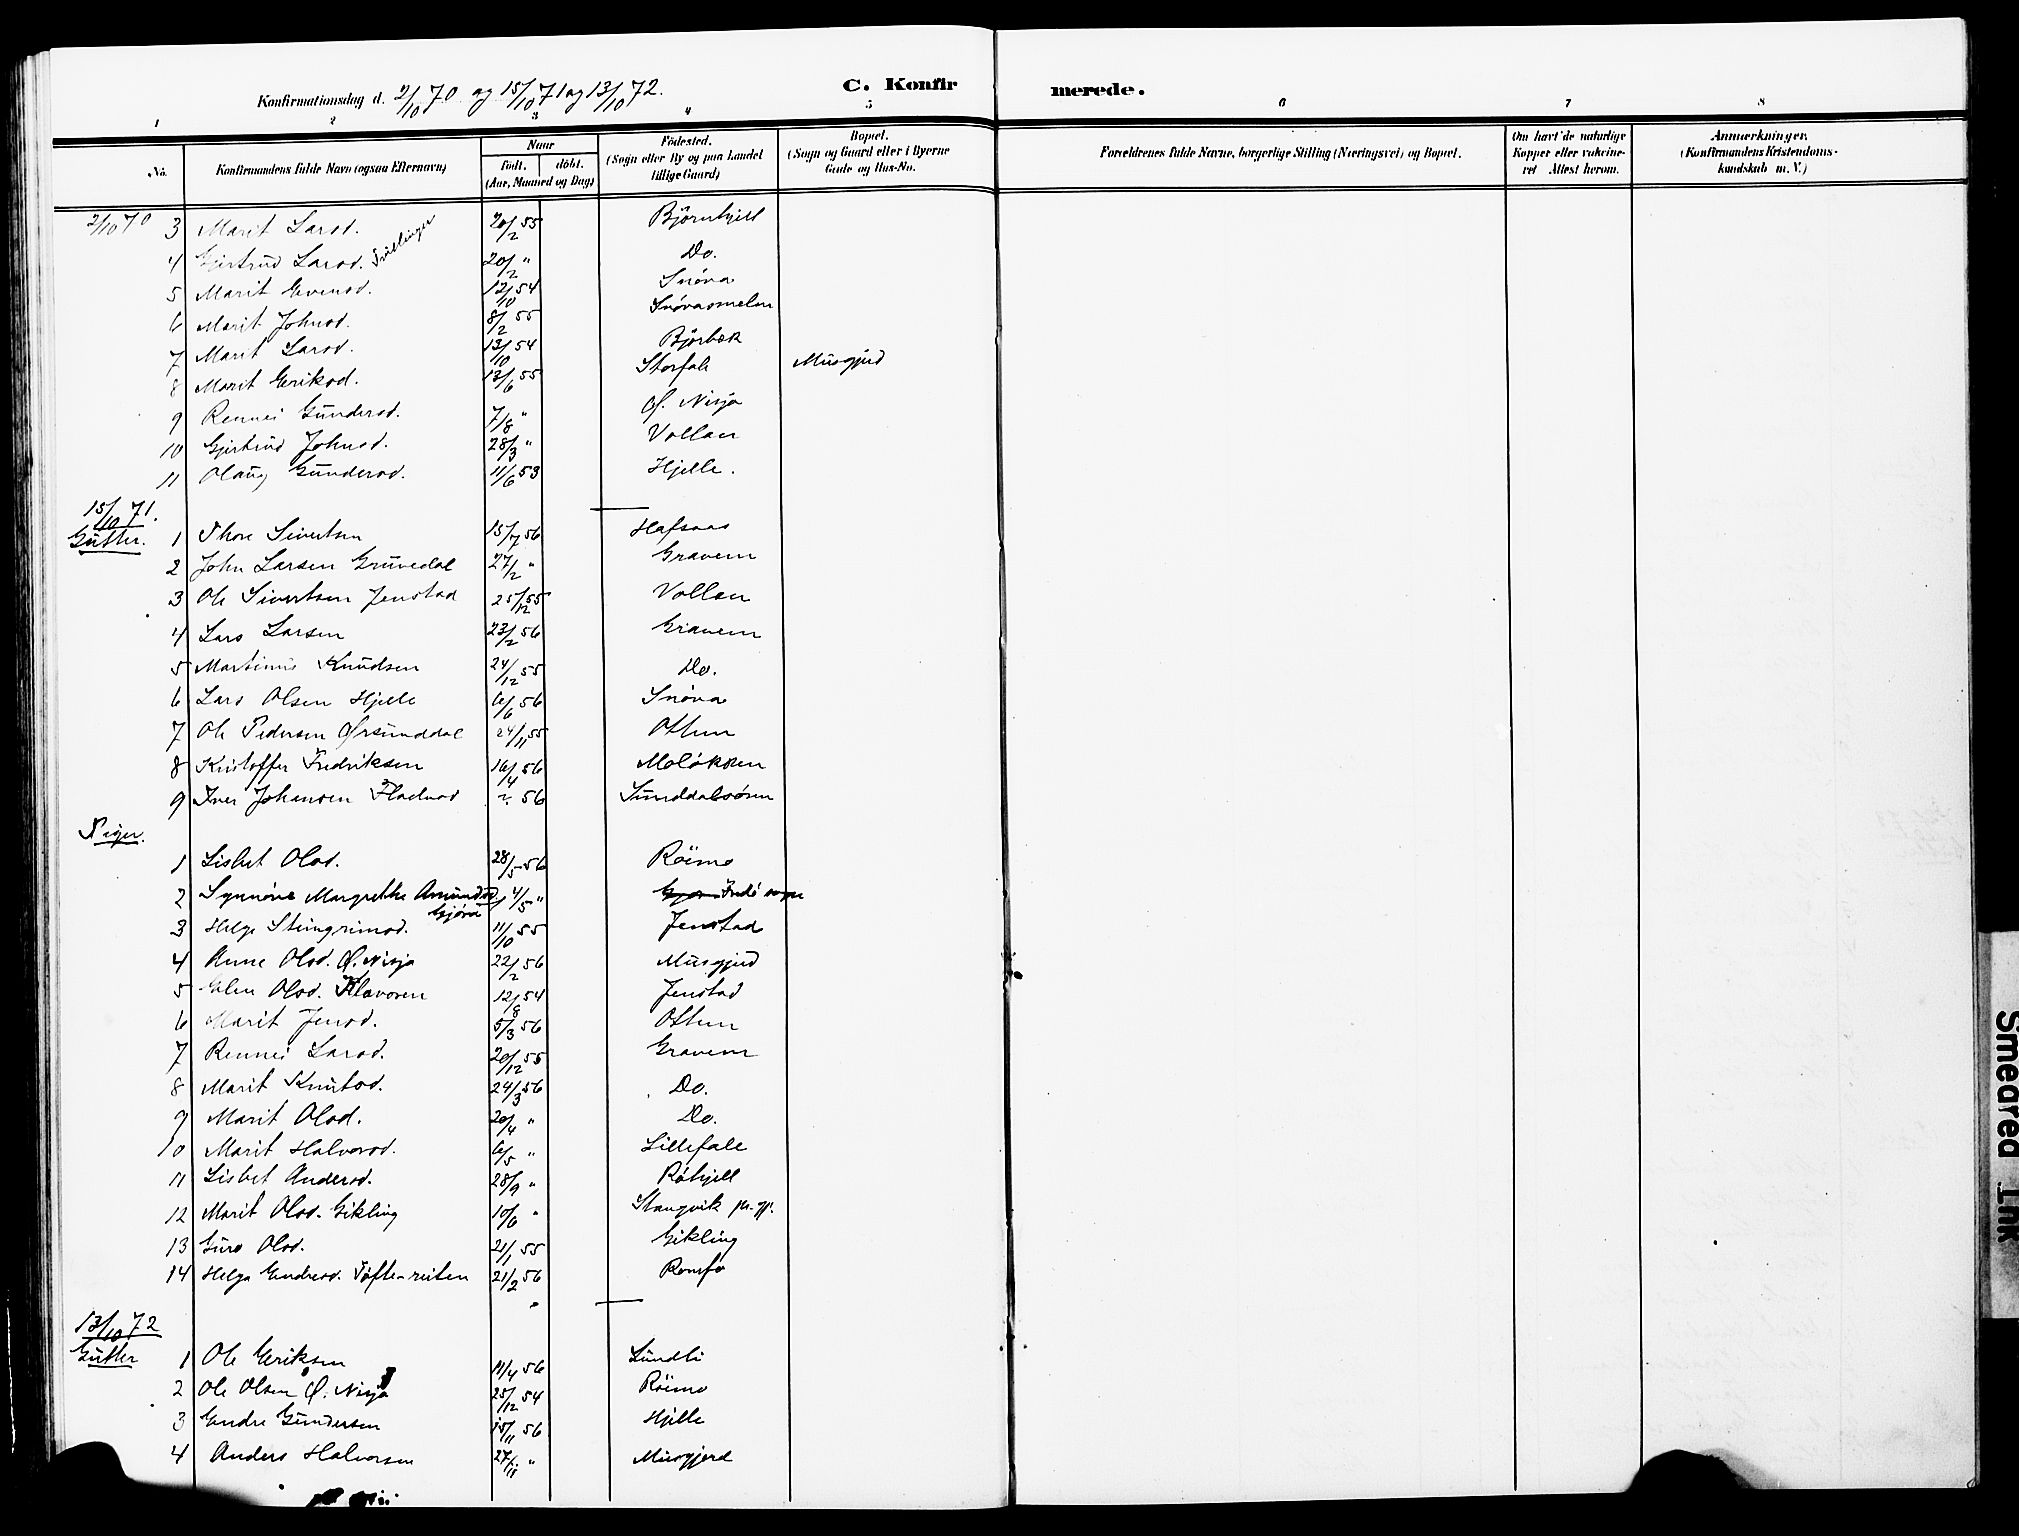 Konfirmationsdag d. 2/10 70 og 15/10 71 og 13/10 72.
C. Konfirmerede.
1 2 3 4 5 6 7 8
No.
Konfirmandens fulde Navn (ogsaa Efternavn)
Naar
født. døbt.
(Aar, Maaned og Dag)
Fødested.
(Sogn eller By og paa Landet
tillige Gaard)
Bopæl.
(Sogn og Gaard eller i Byerne
Gade og Hus-No.
Forældrenes fulde Navne, borgerlige Stilling (Næringsvei) og Bopæl.
Om havt de naturlige
Kopper eller vakcine-
ret Attest herom.
Anmærkninger.
(Konfirmandens Kristendoms-
kundskab m. V.)
2/10 70 3 Marit Larsd. 20/2 55 Bjørnhjell
4 Gjertrud Larsd. Tvillinger 20/2 " Do.
5 Marit Evensd. 12/10 54 Snøva
6 Marit Johnsd. 8/2 55 Snøvasmelen
7 Marit Larsd. 13/10 54 Bjørbæk
8 Marit Eriksd. 13/6 55 Storfale Musgjerd
9 Rennei Gundersd. 7/8 " Ø. Nisja
10 Gjertrud Johnsd. 28/3 " Vollan
11 Olaug Gundersd. 11/6 53 Hjelle.
15/10 71.
Gutter. 1 Thore Sivertsen 15/7 56 Hafsaas
2 John Larsen Gruvedal 27/2 " Gravem
3 Ole Sivertsen Jenstad 25/12 55 Vollan
4 Lars Larsen 23/2 56 Gravem
5 Martinus Knudsen 24/12 55 Do.
6 Lars Olsen Hjelle 6/6 56 Snøva
7 Ole Pedersen Grøunddal 24/11 55 Ottem
8 Kristoffer Fredriksen 16/4 56 Moløkken
9 Iver Johansen Fladvad ?. 56 Sunddalsøren
Piger.
1 Lisbet Olsd. 28/5 56 Røimo
2 Synnøve Margrethe Amundsd. Gjøra 4/5 " Indø sogn
3 Helge Steingrimsd. 11/10 55 Jenstad
4 Anne Olsd. Ø. Nisja 22/2 56 Musgjerd
5 Elen Olsd. Flavoren 12/8 54 Jenstad
6 Marit Jensd. 5/3 56 Ottem
7 Rennei Larsd. 20/12 55 Gravem
8 Marit Knutsd. 24/3 56 Do.
9 Marit Olsd. 20/4 " Do.
10 Marit Halvorsd. 6/5 " Lillefale
11 Lisbet Andersd. 28/9 " Røhjell
12 Marit Olsd. Gikling 10/6 " Stangvik pr.gj.
13 Guro Olsd. 21/1 55 Gikling
14 Helga Endresd. Tøfte-reiten 21/2 56 Romfo
13/10 72
Gutter 1 Ole Eriksen 11/4 56 Lundli
2 Ole Olsen Ø. Nisja 25/12 54 Røimo
3 Endre Gundersen 15/11 56 Hjelle
4 Anders Halvorsen 27/11 " Musgjerd
Smeared Ink